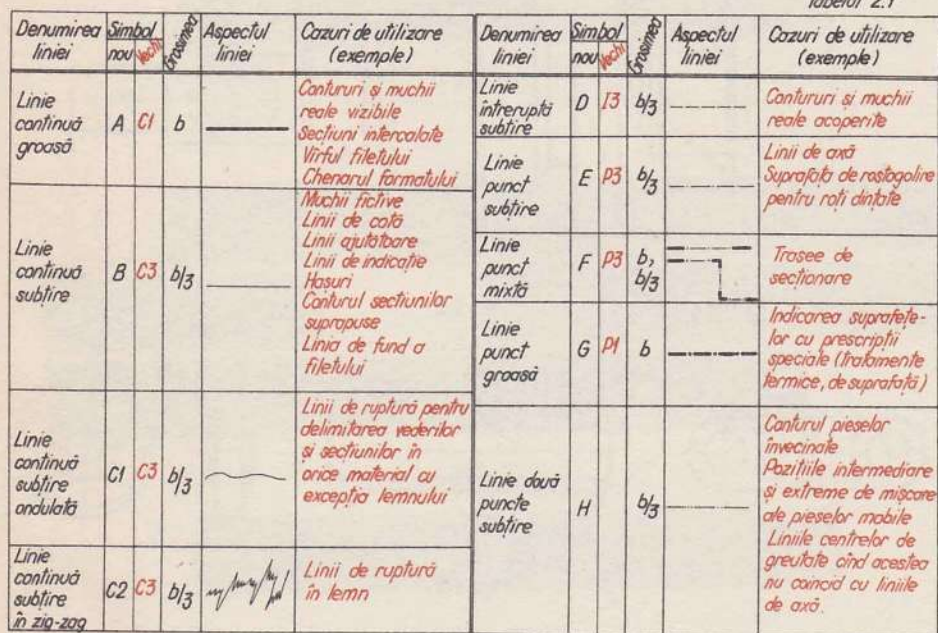 Tabelul 2.1
Denumirea liniei
Simbol
nou
Vechi
Grosimea
Aspectul liniei
Cazuri de utilizare
(exemple)
Linie
continuă
groasă
A
C1
b
Contururi și muchii
reale vizibile
Secțiuni intercalate
Vîrful filetului
Chenarul formatului
Linie
continuă
subțire
B
C3
b/3
Muchii fictive
Linii de cotă
Linii ajutătoare
Linii de indicație
Hașuri
Conturul secțiunilor
suprapuse
Linia de fund a
filetului
Linie
continuă
subțire
ondulată
C1
C3
b/3
Linii de ruptură pentru
delimitarea vederilor
și secțiunilor în
orice material cu
excepția lemnului
Linie
continuă
subțire
în zig-zag
C2
C3
b/3
Linii de ruptură
în lemn
Denumirea
liniei
Simbol
nou
Vechi
Grosimea
Aspectul
liniei
Cazuri de utilizare
(exemple)
Linie
întreruptă
subțire
D
I3
b/3
Contururi și muchii
reale acoperite
Linie
punct
subțire
E
P3
b/3
Linii de axă
Suprafața de rostogolire
pentru roți dințate
Linie
punct
mixtă
F
P3
b,
b/3
Trasee de
secționare
Linie
punct
groasă
G
P1
b
Indicarea suprafețe-
lor cu prescripții
speciale (tratamente
termice, de suprafață)
Linie două
puncte
subțire
H
b/3
Conturul pieselor
învecinate
Pozițiile intermediare
și extreme de mișcare
ale pieselor mobile
Liniile centrelor de
greutate cînd acestea
nu coincid cu liniile
de axă.